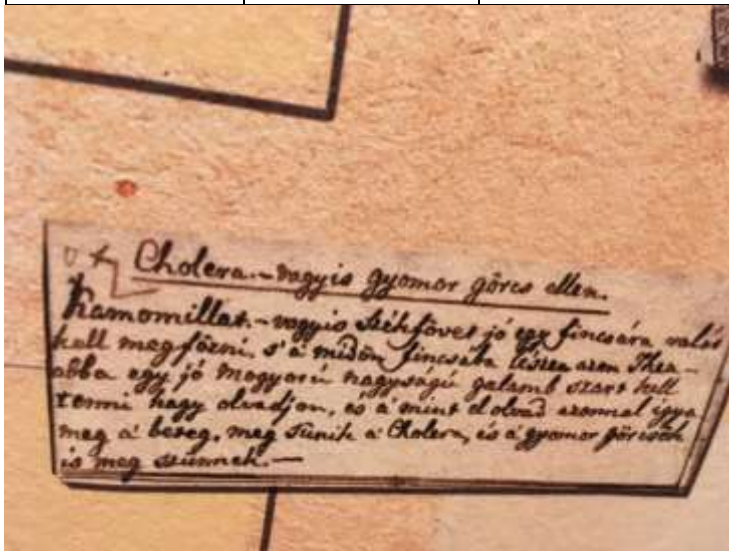 Cholera.- vagyis gyomor görcs ellen.
Kamomillat.- vagyis Székfövet jó egy fincsára valót
kell meg főzni, s'a midőn fincsába lészen azon Thea-
abba egy jó mogyoró nagyságú galamb szart kell
tenni hagy olvadjon, és a' mint el olvad azonnal igya
meg a' beteg, meg szünik a Cholera, és a' gyomor görcsök
is meg szünnek.-